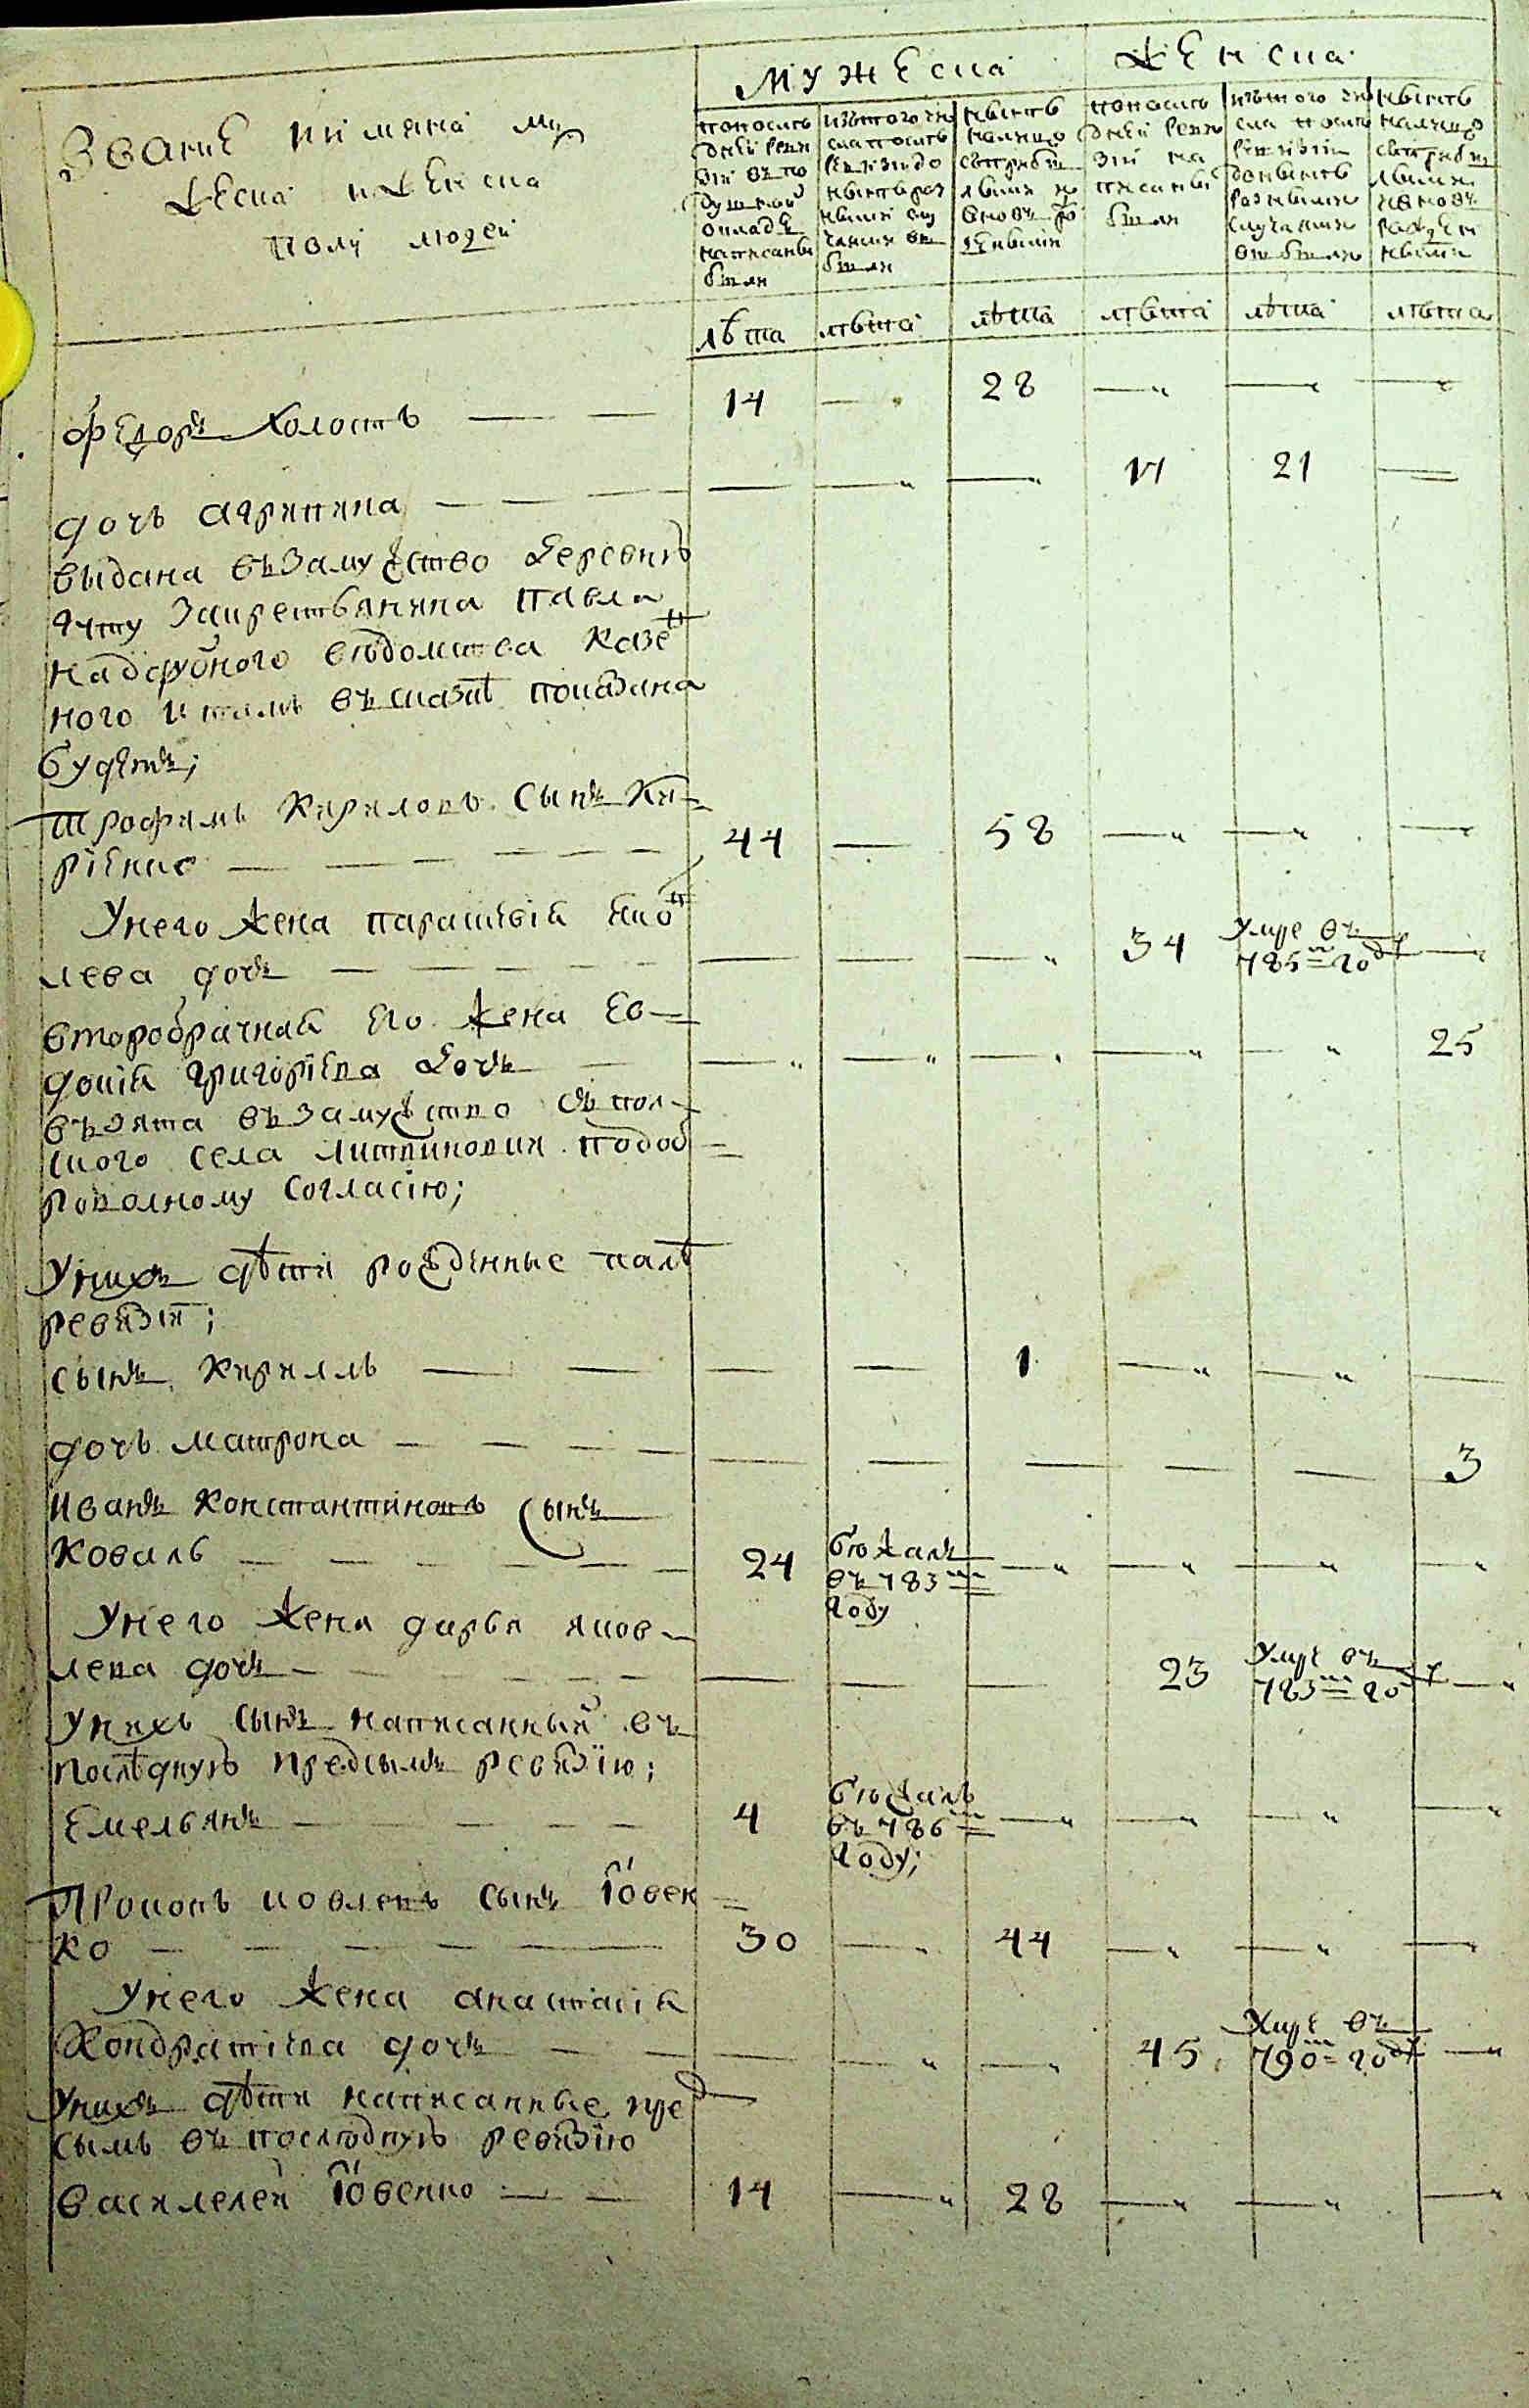 Званіе и имяна му
жеска и женска
полу людей
мужеска
женска
попослѣдней ревизіи въ подушной окладъ написаны были
изътого числа послѣ ревизіи до нынѣ разными случаями выбыли
нынѣ налицо съприбылыми и вновь рожденными
попослѣдней ревизіи написаны были
изътого числа послѣ ревизіи донынѣ разными случаями выбыли
нынѣ налицо съприбылыми и вновь рожденными
лѣта лѣта лѣта лѣта лѣта лѣта
Федоръ Холостъ — — 14 — 28 — — —
дочь агрипина — — — — — 17 21 —
выдана въ Замужство Деревни
Запрестьянина Павла
Надсудного вѣдомства Казен
ного и тамъ въ сказкѣ показана
будетъ;
Трофимъ Кириловъ сынъ Ки-
ріенко — — — 44 — 58 — — —
Унего жена парасковія яко
лева дочь — — — — — — 34 умре въ 785 м году —
второбрачная его жена Ев-
докія григоріева дочь — — — — — — 25
въ зята въ замужство съ пол-
ского села литвиновки подоб
роволному согласію;
Унихъ дѣти рожденные послѣ
ревизіи;
сынъ Кириллъ — — — — 1 — — —
дочь матрона — — — — — — — 3
Иванъ Константиновъ сынъ
Коваль — — — 24 бѣжалъ въ 783 м году — — — —
Унего жена дарья яков-
лева дочь — — — — — 23 умре въ 783 м году —
Унихъ сынъ написанный въ
послѣдную предсымъ ревизію;
Емельянъ — — — 4 бѣжалъ въ 786 м году; — — — —
Прокопъ иовлевъ сынъ Іовен
ко — — — 30 — 44 — — —
Унего жена анастасія
Кондратіева дочь — — — — — 45 Умре въ 790 м году —
Унихъ дѣти написанные пред
сымъ въ послѣдную ревизію
василей Іовенко — — 14 — 28 — — —